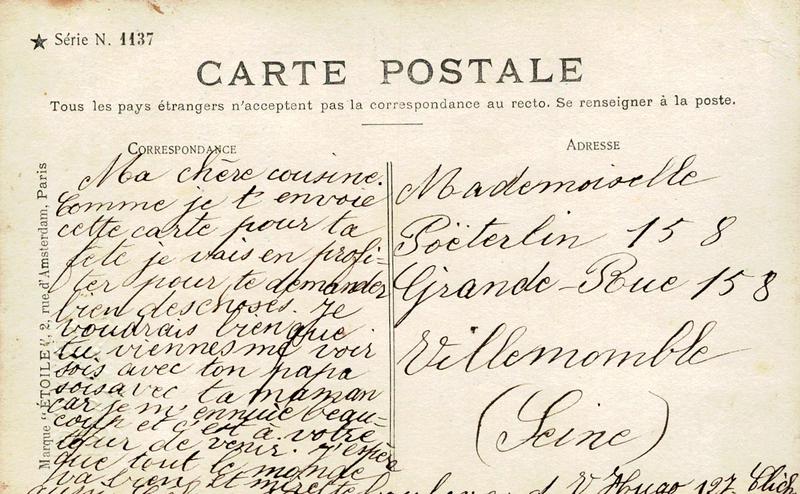 ★ Série N. 1137
CARTE POSTALE
Tous les pays étrangers n'acceptent pas la correspondance au recto. Se renseigner à la poste.
CORRESPONDANCE
Ma chère cousine.
Comme je t envoie
cette carte pour ta
fête je vais en profi-
ter pour te demander
bien des choses. Je
voudrais bien que
tu viennes me voir
sois avec ton papa
sois avec ta maman
car je m ennuie beau-
coup et c'est a votre
tour de venir. J'espère
que tout le monde
va bien et
ADRESSE
Mademoiselle
Poëterlin 158
Grande-Rue 158
Villemomble
(Seine)
V Hugo 127
Marque "ÉTOILE", 2, rue d'Amsterdam, Paris